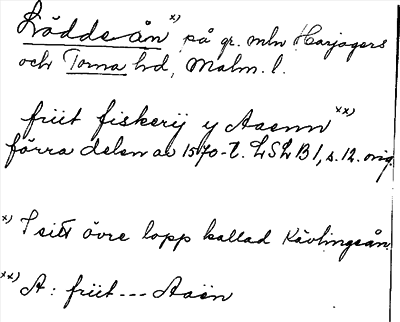 Löddeån x) på gr. mln Harjagers
och Torna hd, Malm. l.
friit fiskerij y Aaenn xx)
förra delen av 1570-t. LSLB 1, s. 12. orig.
x) I sitt övre lopp kallad Kävlingeån.
xx) A: friit --- Aaën